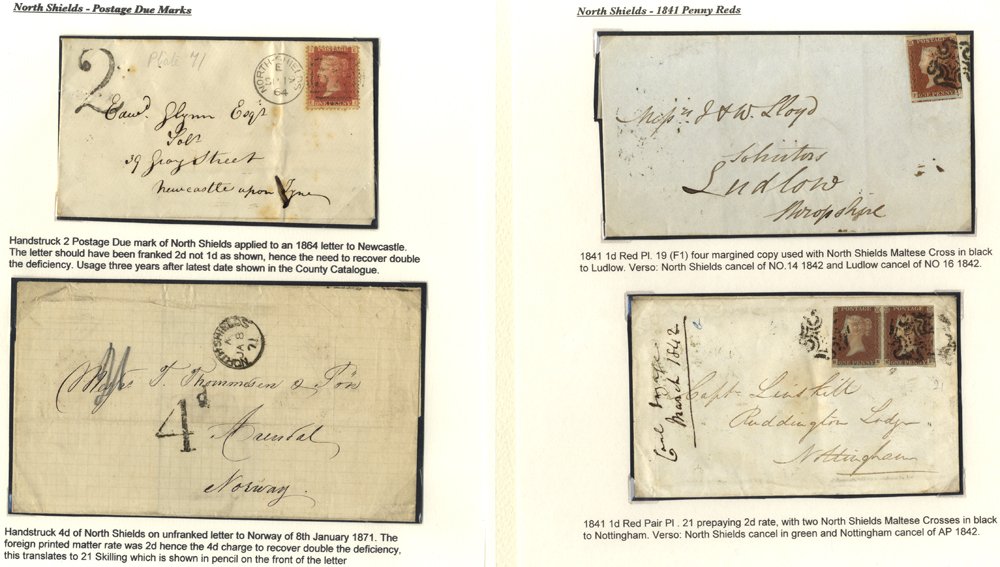 North Shields - Postage Due Marks
2
Plate 71
NORTH-SHIELDS
E
64
ONE PENNY
Edwd. Glynn Esqr
Solr
39 Gray Street
Newcastle upon Tyne
Handstruck 2 Postage Due mark of North Shields applied to an 1864 letter to Newcastle.
The letter should have been franked 2d not 1d as shown, hence the need to recover double
the deficiency. Usage three years after latest date shown in the County Catalogue.
NORTH SHIELDS
A
JA 8
71
T. Thommesen & Sön
4d
Arendal
Norway.
Handstruck 4d of North Shields on unfranked letter to Norway of 8th January 1871. The
foreign printed matter rate was 2d hence the 4d charge to recover double the deficiency,
this translates to 21 Skilling which is shown in pencil on the front of the letter
North Shields - 1841 Penny Reds
POSTAGE
Messrs J & W. Lloyd
Solicitors
Ludlow
Shropshire
1841 1d Red Pl. 19 (F1) four margined copy used with North Shields Maltese Cross in black
to Ludlow. Verso: North Shields cancel of NO.14 1842 and Ludlow cancel of NO 16 1842.
POSTAGE POSTAGE
ONE PENNY
March 1842
Capt. Linskill
Ruddington Lodge
Nottingham
1841 1d Red Pair Pl . 21 prepaying 2d rate, with two North Shields Maltese Crosses in black
to Nottingham. Verso: North Shields cancel in green and Nottingham cancel of AP 1842.